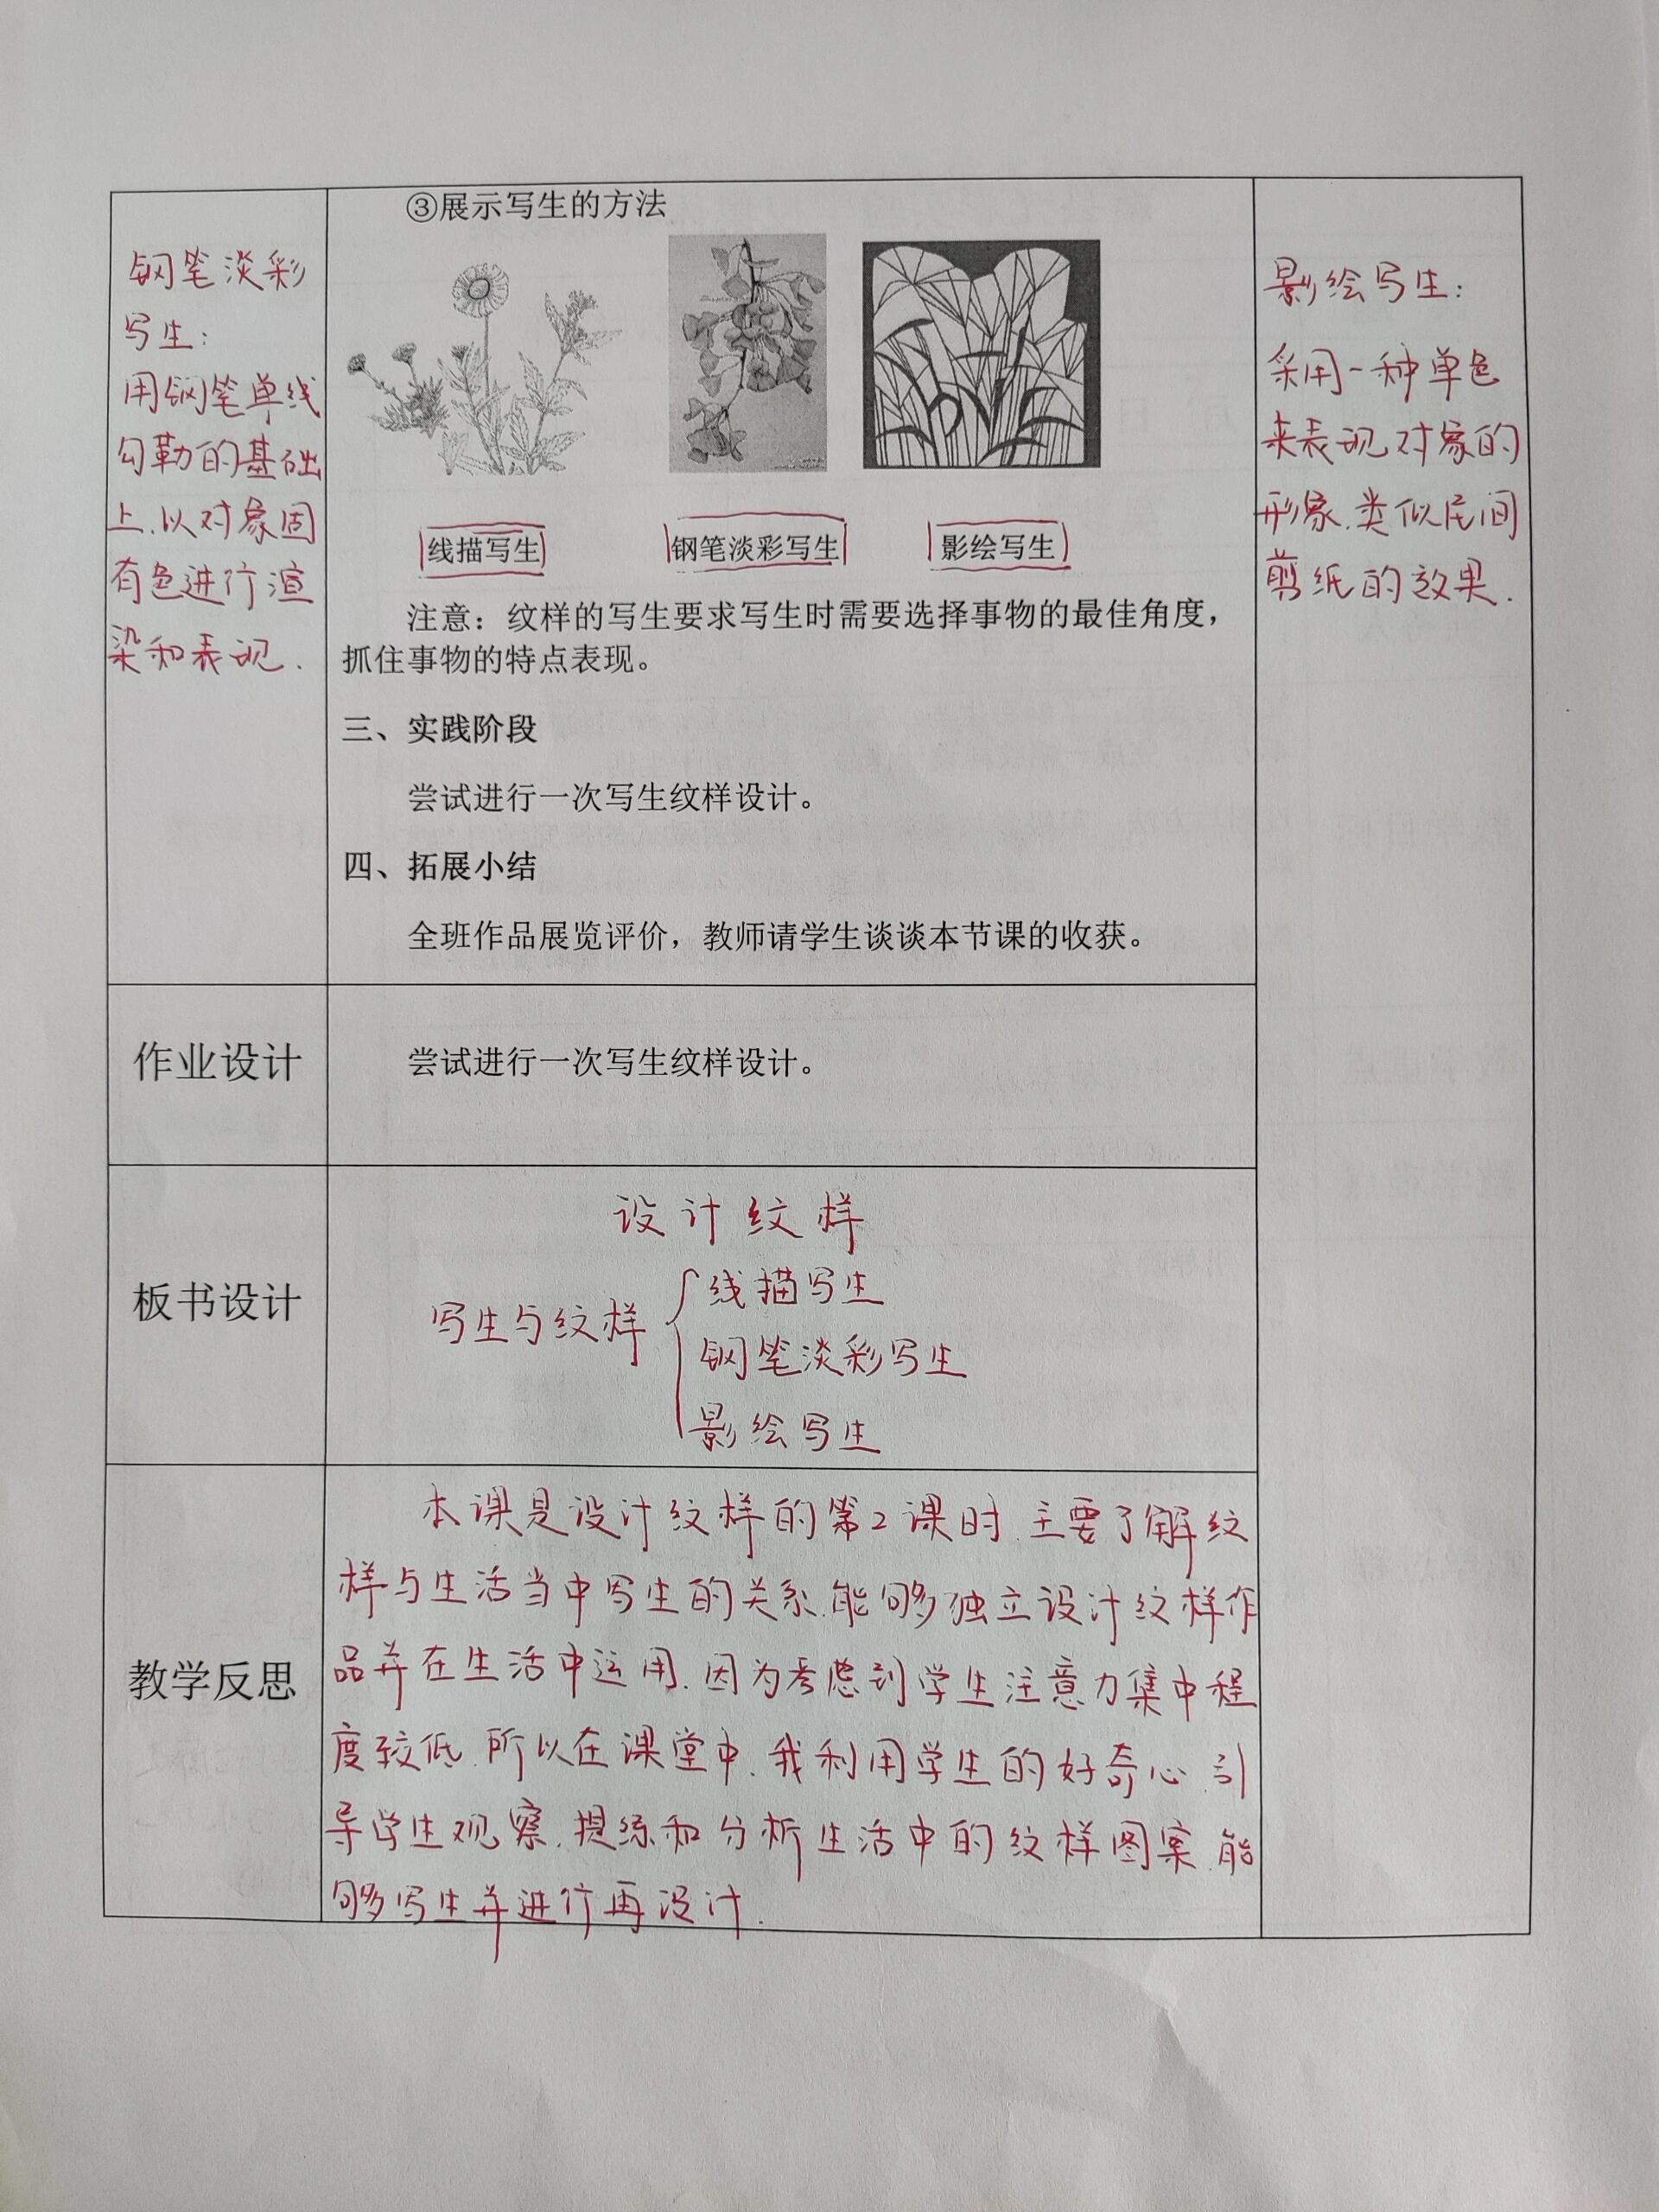 ③展示写生的方法
钢笔淡彩
写生：
用钢笔单线
勾勒的基础
上.以对象固
有色进行渲
染和表现.
线描写生
钢笔淡彩写生
影绘写生
影绘写生：
采用一种单色
来表现对象的
形象.类似民间
剪纸的效果.
注意：纹样的写生要求写生时需要选择事物的最佳角度，
抓住事物的特点表现。
三、实践阶段
尝试进行一次写生纹样设计。
四、拓展小结
全班作品展览评价，教师请学生谈谈本节课的收获。
作业设计
尝试进行一次写生纹样设计。
板书设计
设计纹样
写生与纹样
线描写生
钢笔淡彩写生
影绘写生
教学反思
本课是设计纹样的第2课时.主要了解纹
样与生活当中写生的关系.能够独立设计纹样作
品并在生活中运用.因为考虑到学生注意力集中程
度较低.所以在课堂中.我利用学生的好奇心.引
导学生观察.提练和分析生活中的纹样图案.能
够写生并进行再设计.